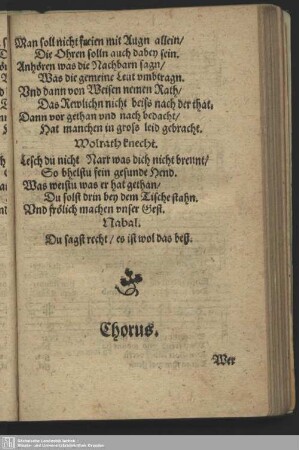 Man soll nicht freien mit Augn allein/
Die Ohren solln auch dabey sein.
Anhören was die Nachbarn sagn/
Was die gemeine Leut vmbtragn.
Vnd dann von Weisen nemen Rath/
Das Rewlichn nicht beiss nach der that,
Dann vor gethan vnd nach bedacht/
Hat manchen in gross leid gebracht.
Wolrath knecht.
Lesch du nicht Narr was dich nicht brennt/
So bheltu fein gesunde Hend.
Was weistu was er hat gethan/
Du solst drin bey dem Tische stahn.
Vnd frölich machen vnser Gest.
Nabal.
Du sagst recht/ es ist wol das best.
Chorus.
Wer